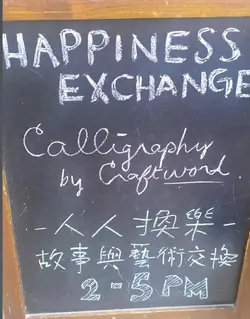 HAPPINESS
EXCHANGE
Calligraphy
by Craftword
-人人換樂-
故事與藝術交換
2-5 PM